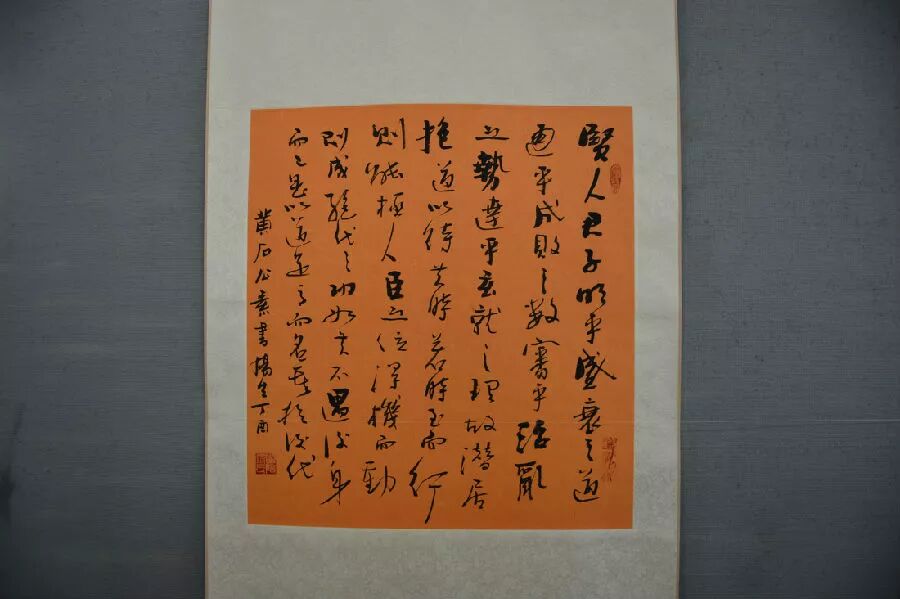 賢人君子明乎盛衰之道
通乎成敗之數審乎治亂
之勢達乎去就之理故潛居
抱道以待其時若時至而行
則能極人臣之位得機而動
則成絕代之功如其不遇沒身
而已是以道足高而名重於後代
黃石公素書楊丁酉